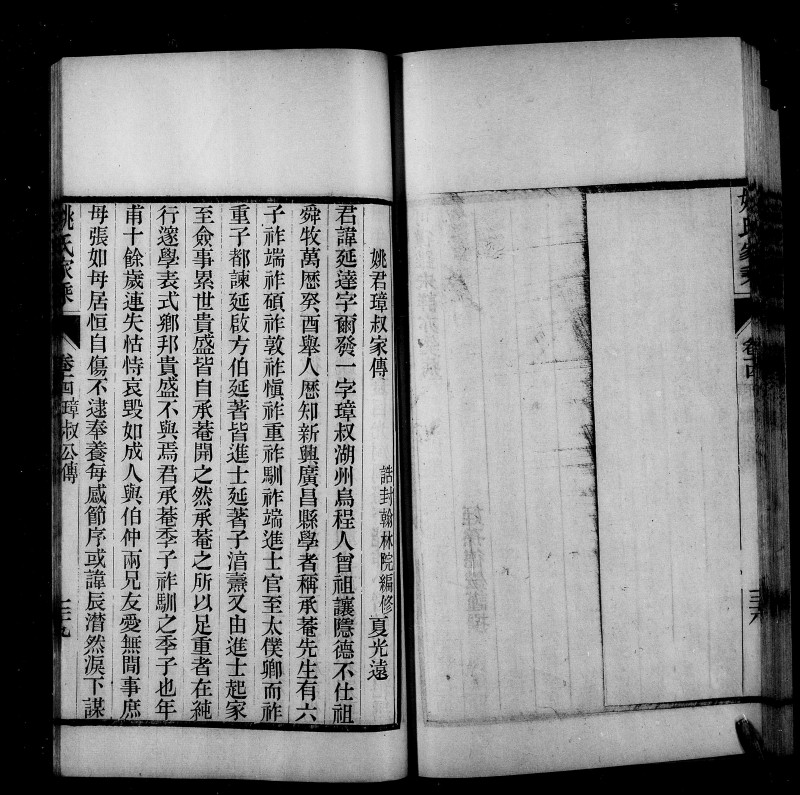 姚氏家乘
卷十四
三十八
姚君璋叔家傳
誥封翰林院編修夏光遠
君諱延逵字爾發一字璋叔湖州烏程人曾祖讓隱德不仕祖
舜牧萬厯癸酉舉人厯知新興廣昌縣學者稱承菴先生有六
子祚端祚碩祚敦祚愼祚重祚馴祚端進士官至太僕卿而祚
重子都諫延啟方伯延著皆進士延著子淳燾又由進士起家
至僉事累世貴盛皆自承菴開之然承菴之所以足重者在純
行邃學表式鄉邦貴盛不與焉君承菴季子祚馴之季子也年
甫十餘歲連失怙恃哀毀如成人與伯仲兩兄友愛無閒事庶
母張如母居恒自傷不逮奉養每感節序或諱辰潸然淚下謀
姚氏家乘
卷十四璋叔公傳
三十九